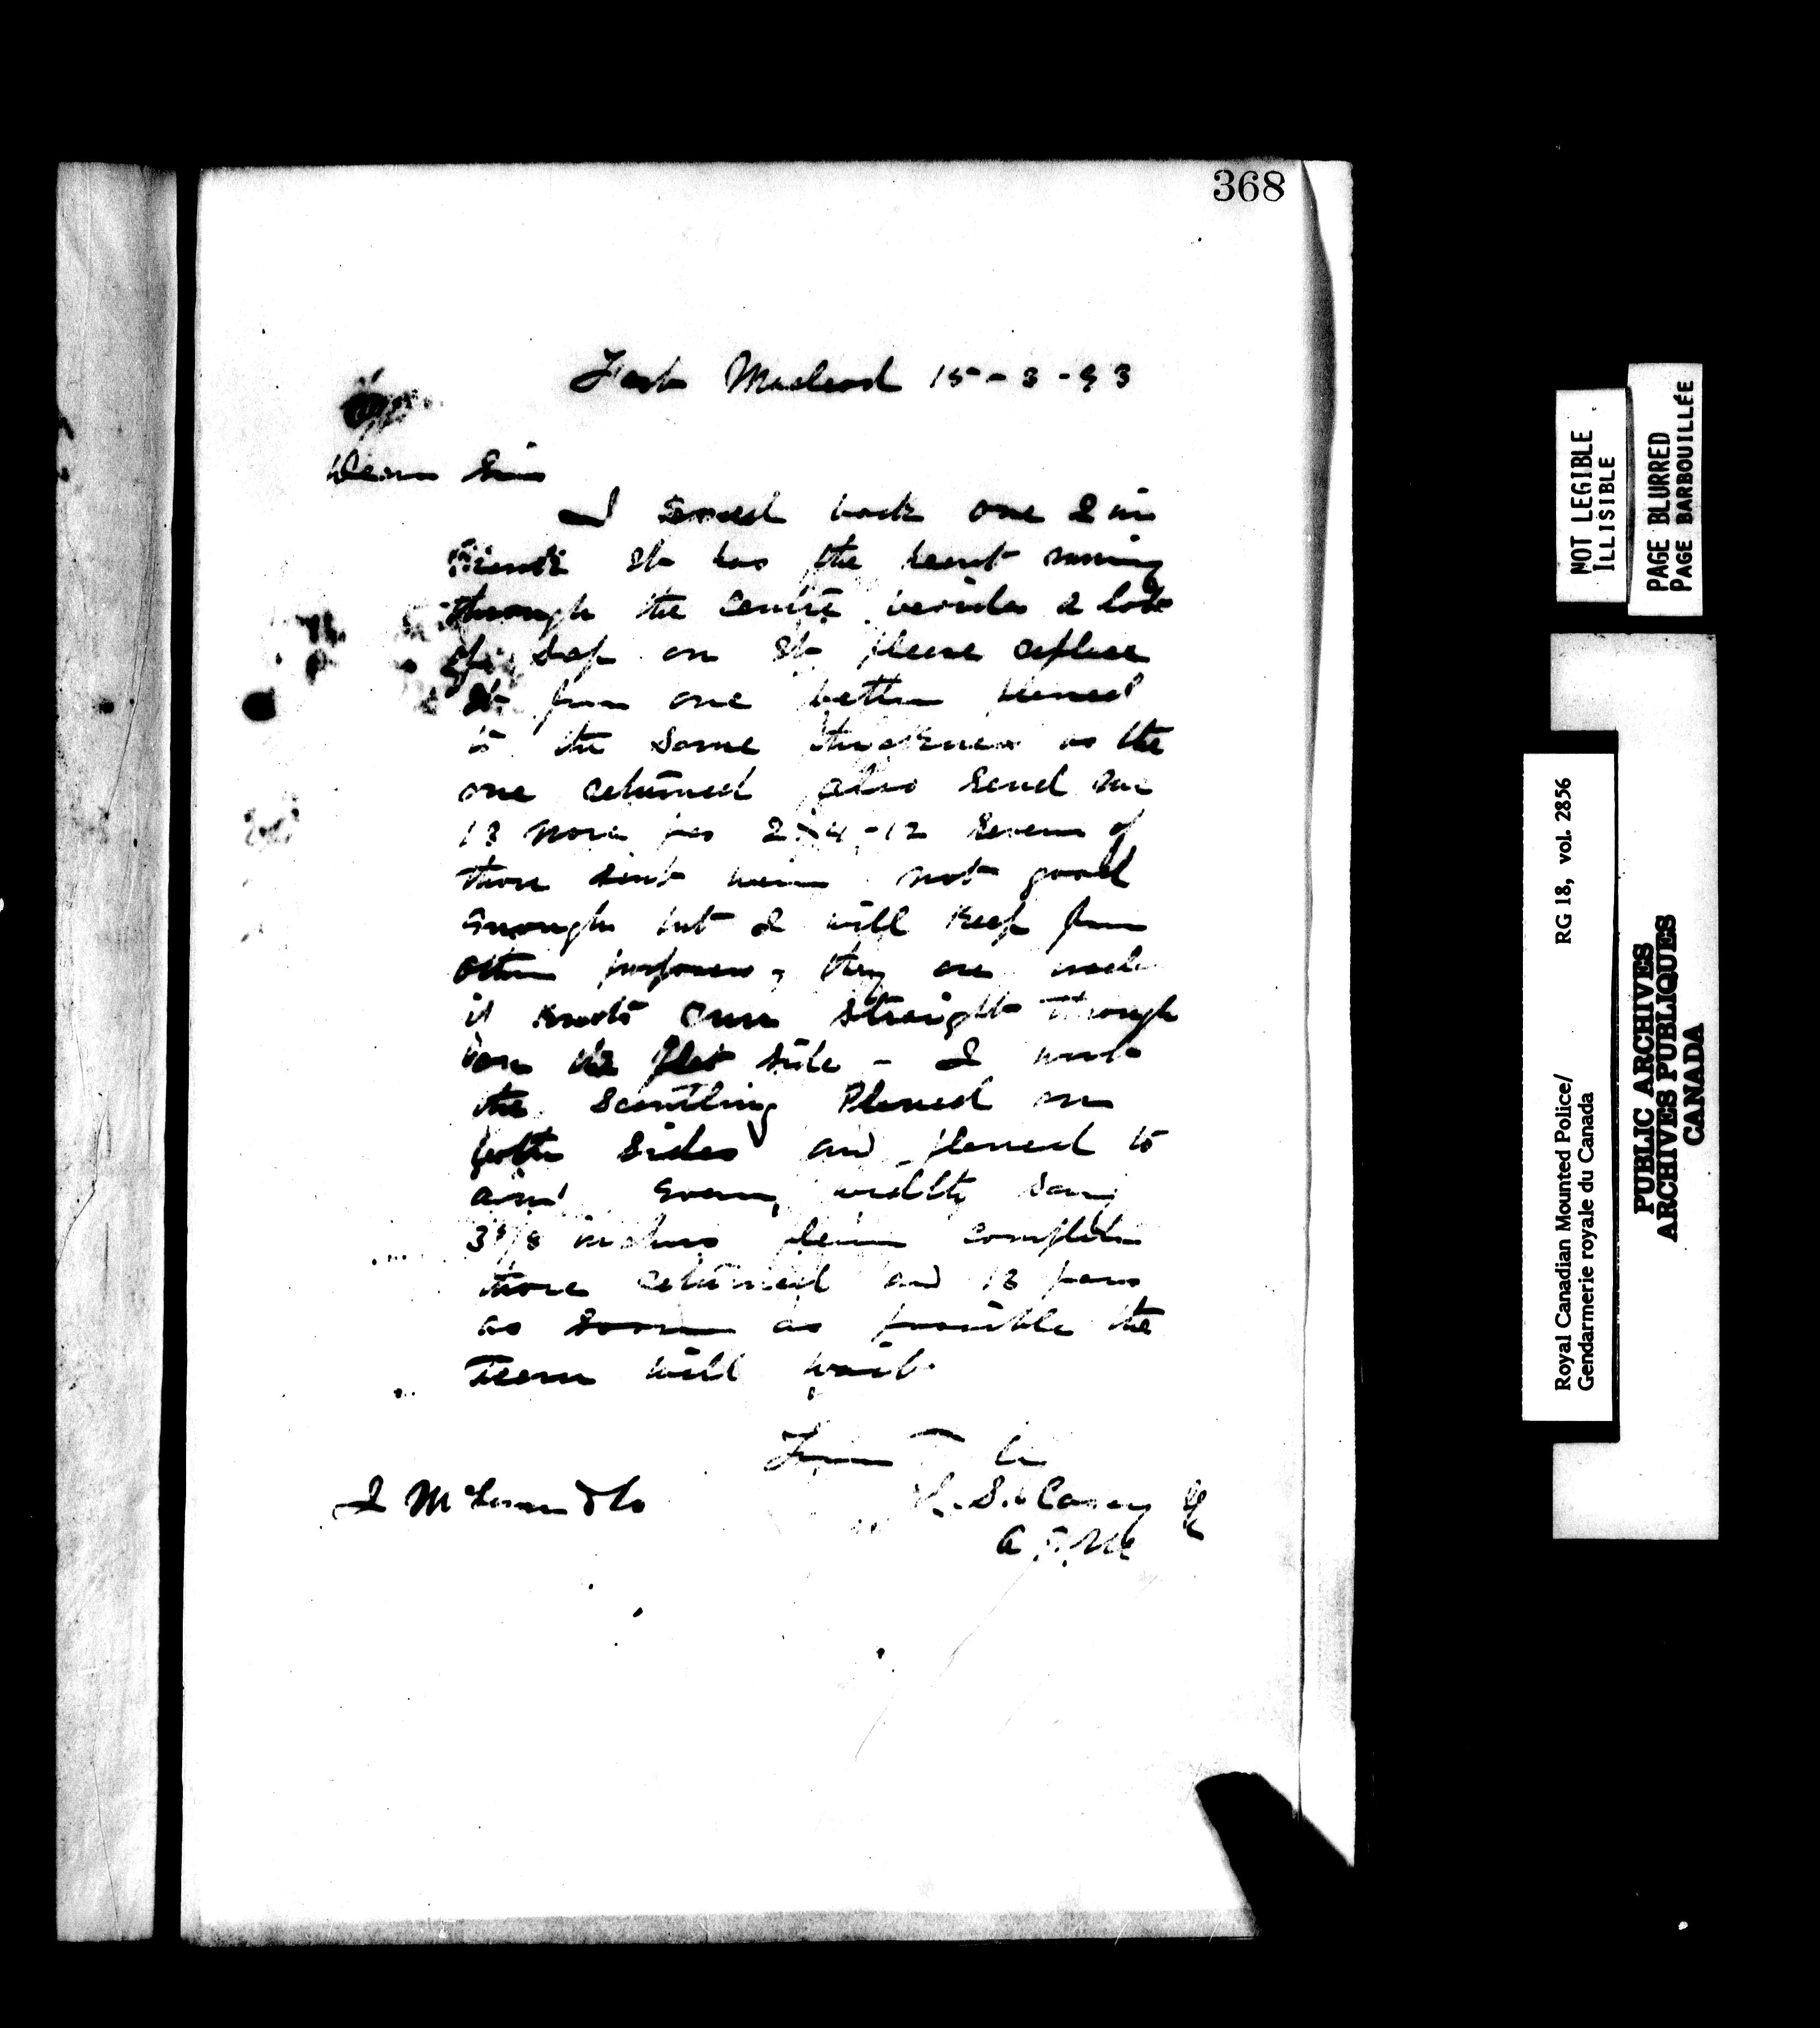 368
Fort Macleod 15-3-93
Dear Sir
I send back one 2 in
plank it has the heart running
through the centre besides a lot
of sap on it please replace
it for one better planed
to the same thickness as the
one returned also send me
13 more pcs 2x4-12 Seven of
those sent were not good
enough but I will keep for
other purposes, they are
if knots run straight through
on the flat side - I want
the scantling Planed on
both sides and planed to
an even width say
3 5/8 inches please complete
those returned and 13 pces
as soon as possible the
Team will wait
Casey
NOT LEGIBLE
ILLISIBLE
PAGE BLURRED
PAGE BARBOUILLÉE
Royal Canadian Mounted Police/ RG 18, vol. 2856
Gendarmerie royale du Canada
PUBLIC ARCHIVES
ARCHIVES PUBLIQUES
CANADA